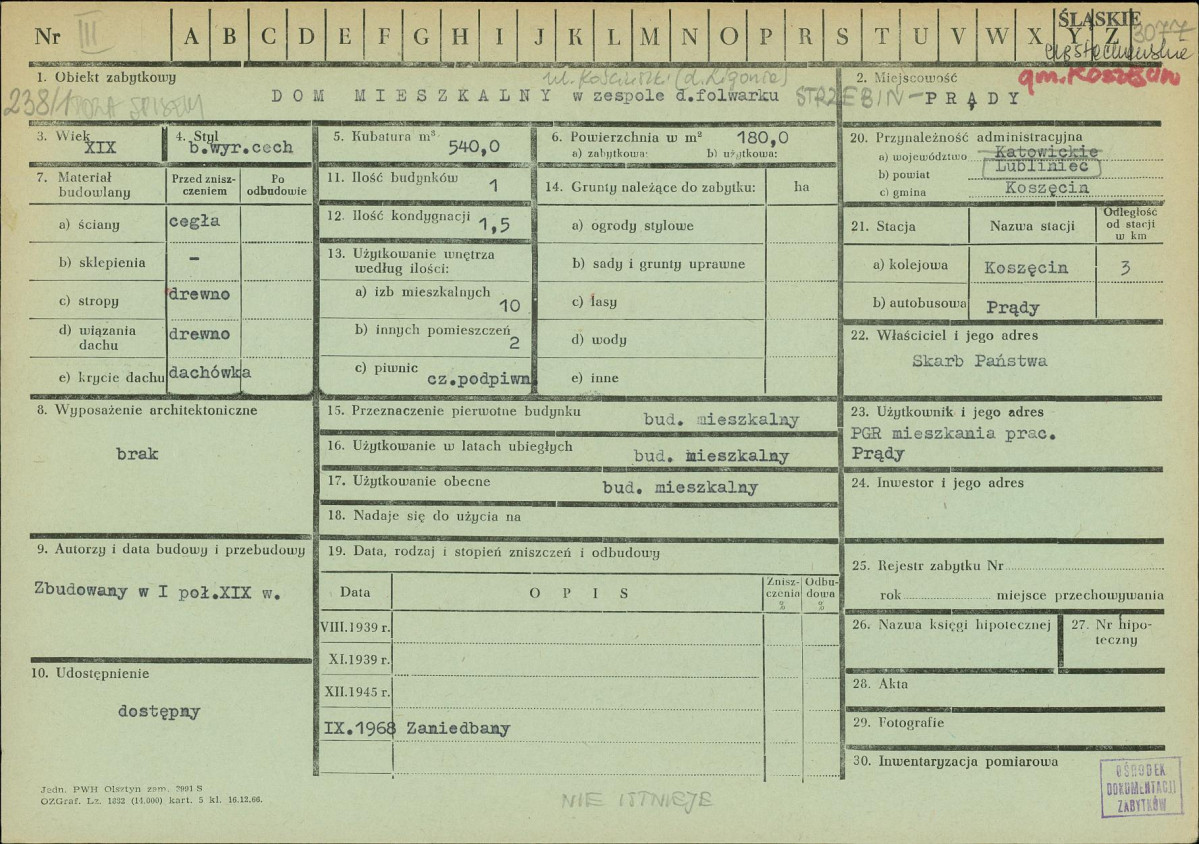 Nr III A B C D E F G H I J K L M N O P R S T U V W X Y Z
ŚLĄSKIE
3077
częstochowskie
gm. Koszęcin
1. Obiekt zabytkowy
ul. Kościuszki (d. Ligonia)
238/1 POZA SPISEM
DOM MIESZKALNY w zespole d.folwarku
2. Miejscowość
STRZEBIŃ - PRĄDY
3. Wiek
XIX
4. Styl
b.wyr.cech
5. Kubatura m³
540,0
6. Powierzchnia w m² 180,0
a) zabytkowa: b) użytkowa:
7. Materiał budowlany
Przed zniszczeniem
Po odbudowie
a) ściany cegła
b) sklepienia –
c) stropy drewno
d) wiązania dachu drewno
e) krycie dachu dachówka
8. Wyposażenie architektoniczne
brak
9. Autorzy i data budowy i przebudowy
Zbudowany w I poł.XIX w.
10. Udostępnienie
dostępny
11. Ilość budynków 1
12. Ilość kondygnacji 1,5
13. Użytkowanie wnętrza
według ilości:
a) izb mieszkalnych 10
b) innych pomieszczeń 2
c) piwnic cz.podpiwn
14. Grunty należące do zabytku: ha
a) ogrody stylowe
b) sady i grunty uprawne
c) lasy
d) wody
e) inne
15. Przeznaczenie pierwotne budynku bud. mieszkalny
16. Użytkowanie w latach ubiegłych bud. mieszkalny
17. Użytkowanie obecne bud. mieszkalny
18. Nadaje się do użycia na
19. Data, rodzaj i stopień zniszczeń i odbudowy
Data OPIS Zniszczenia % Odbudowa %
VIII.1939 r.
XI.1939 r.
XII.1945 r.
IX.1968 Zaniedbany
20. Przynależność administracyjna
a) województwo Katowickie
b) powiat Lubliniec
c) gmina Koszęcin
21. Stacja Nazwa stacji Odległość od stacji w km
a) kolejowa Koszęcin 3
b) autobusowa Prądy
22. Właściciel i jego adres
Skarb Państwa
23. Użytkownik i jego adres
PGR mieszkania prac.
Prądy
24. Inwestor i jego adres
25. Rejestr zabytku Nr
rok miejsce przechowywania
26. Nazwa księgi hipotecznej
27. Nr hipoteczny
28. Akta
29. Fotografie
30. Inwentaryzacja pomiarowa
OŚRODEK
DOKUMENTACJI
ZABYTKÓW
Jedn. PWH Olsztyn zam. 2991 S
OZGraf. Lz. 1832 (14.000) kart. 5 kl. 16.12.66.
NIE ISTNIEJE